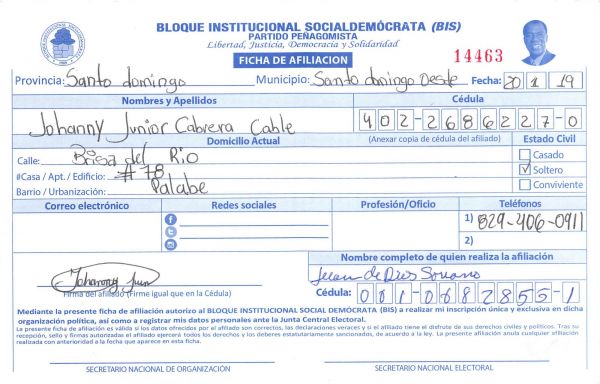 BLOQUE INSTITUCIONAL SOCIALDEMÓCRATA (BIS)
PARTIDO PEÑAGOMISTA
Libertad, Justicia, Democracia y Solidaridad
FICHA DE AFILIACION
14463
Provincia: Santo domingo Municipio: Santo domingo Oeste Fecha: 20 1 19
Nombres y Apellidos Cédula
Johanny Junior Cabrera Cable 402-2686227-0
Domicilio Actual (Anexar copia de cédula del afiliado) Estado Civil
Calle: Brisa del Rio Casado
#Casa / Apt. / Edificio: #78 Soltero
Barrio / Urbanización: Palabe Conviviente
Correo electrónico Redes sociales Profesión/Oficio Teléfonos
1) 829-406-0911
2)
Nombre completo de quien realiza la afiliación
Johanny Jun Juan de Dios Soriano
Firma del afiliado (Firme igual que en la Cédula) Cédula: 001-0682855-1
Mediante la presente ficha de afiliación autorizo al BLOQUE INSTITUCIONAL SOCIAL DEMÓCRATA (BIS) a realizar mi inscripción única y exclusiva en dicha
organización política, así como a registrar mis datos personales ante la Junta Central Electoral.
La presente ficha de afiliación es válida si los datos ofrecidos por el afiliado son correctos, las declaraciones veraces y si el afiliado tiene el disfrute de sus derechos civiles y políticos. Tras su
recepción, sello y firmas autorizadas el afiliado ejercerá todos los derechos y los deberes estatutariamente sancionados, de acuerdo a la ley. La presente afiliación anula cualquier afiliación
realizada con anterioridad a la fecha que aparece en esta ficha.
SECRETARIO NACIONAL DE ORGANIZACIÓN SECRETARIO NACIONAL ELECTORAL